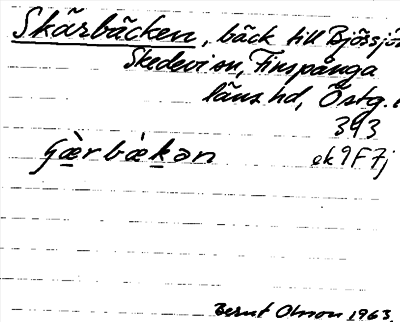 Skärbäcken, bäck till Björsjö
Skedevi sn, Finspånga
läns hd, Östg.
343
ek 9F7j
Bernt Olsson 1963.